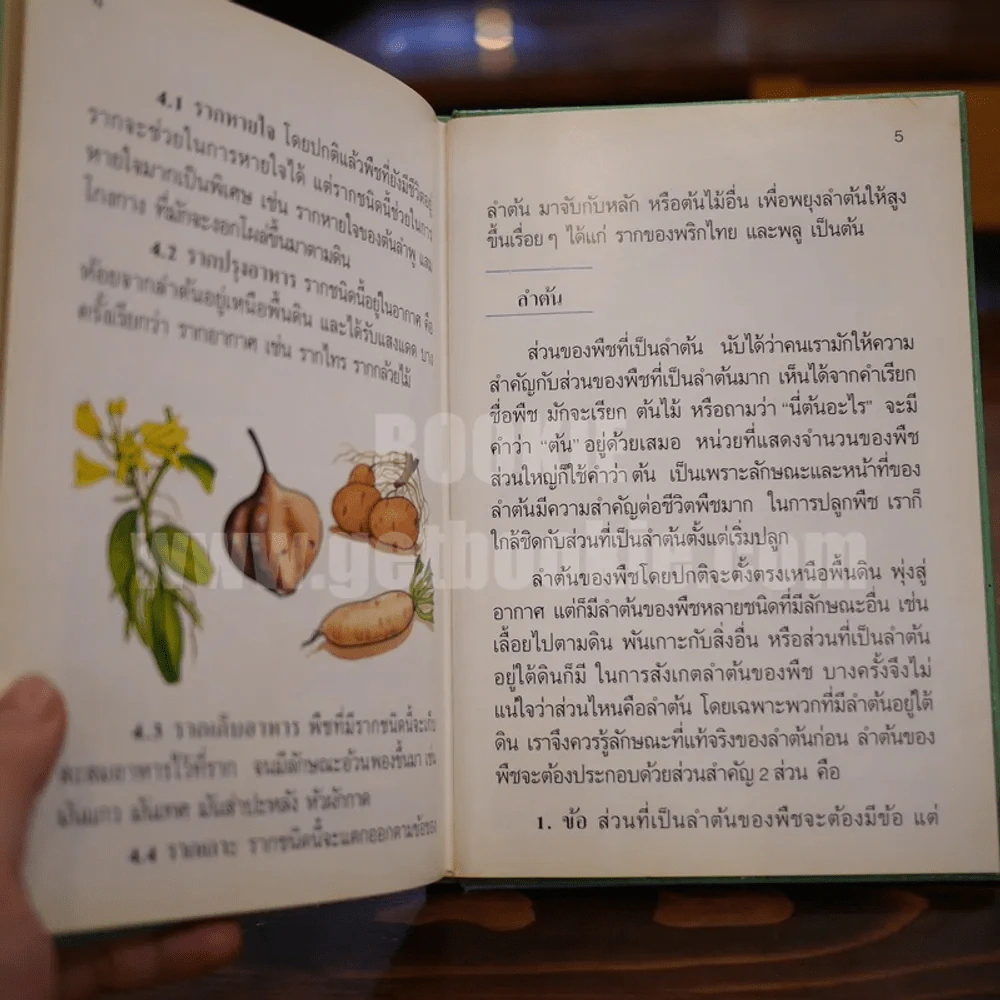 4.1 รากหายใจ โดยปกติแล้วพืชที่ยังมีชีวิตอยู่
รากจะช่วยในการหายใจได้ แต่รากชนิดนี้ช่วยในการ
หายใจมากเป็นพิเศษ เช่น รากหายใจของต้นลำพู แสม
โกงกาง ที่มักจะงอกโผล่ขึ้นมาตามดิน
4.2 รากปรุงอาหาร รากชนิดนี้อยู่ในอากาศ คือ
ห้อยจากลำต้นอยู่เหนือพื้นดิน และได้รับแสงแดด บาง
ครั้งเรียกว่า รากอากาศ เช่น รากไทร รากกล้วยไม้
4.3 รากเก็บอาหาร พืชที่มีรากชนิดนี้จะเก็บ
สะสมอาหารไว้ที่ราก จนมีลักษณะอ้วนพองขึ้นมา เช่น
มันแกว มันเทศ มันสำปะหลัง หัวผักกาด
4.4 รากเกาะ รากชนิดนี้จะแตกออกตามข้อของ
5
ลำต้น มาจับกับหลัก หรือต้นไม้อื่น เพื่อพยุงลำต้นให้สูง
ขึ้นเรื่อยๆ ได้แก่ รากของพริกไทย และพลู เป็นต้น
ลำต้น
ส่วนของพืชที่เป็นลำต้น นับได้ว่าคนเรามักให้ความ
สำคัญกับส่วนของพืชที่เป็นลำต้นมาก เห็นได้จากคำเรียก
ชื่อพืช มักจะเรียก ต้นไม้ หรือถามว่า "นี่ต้นอะไร" จะมี
คำว่า "ต้น" อยู่ด้วยเสมอ หน่วยที่แสดงจำนวนของพืช
ส่วนใหญ่ก็ใช้คำว่า ต้น เป็นเพราะลักษณะและหน้าที่ของ
ลำต้นมีความสำคัญต่อชีวิตพืชมาก ในการปลูกพืช เราก็
ใกล้ชิดกับส่วนที่เป็นลำต้นตั้งแต่เริ่มปลูก
ลำต้นของพืชโดยปกติจะตั้งตรงเหนือพื้นดิน พุ่งสู่
อากาศ แต่ก็มีลำต้นของพืชหลายชนิดที่มีลักษณะอื่น เช่น
เลื้อยไปตามดิน พันเกาะกับสิ่งอื่น หรือส่วนที่เป็นลำต้น
อยู่ใต้ดินก็มี ในการสังเกตลำต้นของพืช บางครั้งจึงไม่
แน่ใจว่าส่วนไหนคือลำต้น โดยเฉพาะพวกที่มีลำต้นอยู่ใต้
ดิน เราจึงควรรู้ลักษณะที่แท้จริงของลำต้นก่อน ลำต้นของ
พืชจะต้องประกอบด้วยส่วนสำคัญ 2 ส่วน คือ
1. ข้อ ส่วนที่เป็นลำต้นของพืชจะต้องมีข้อ แต่
www.getbookie.com